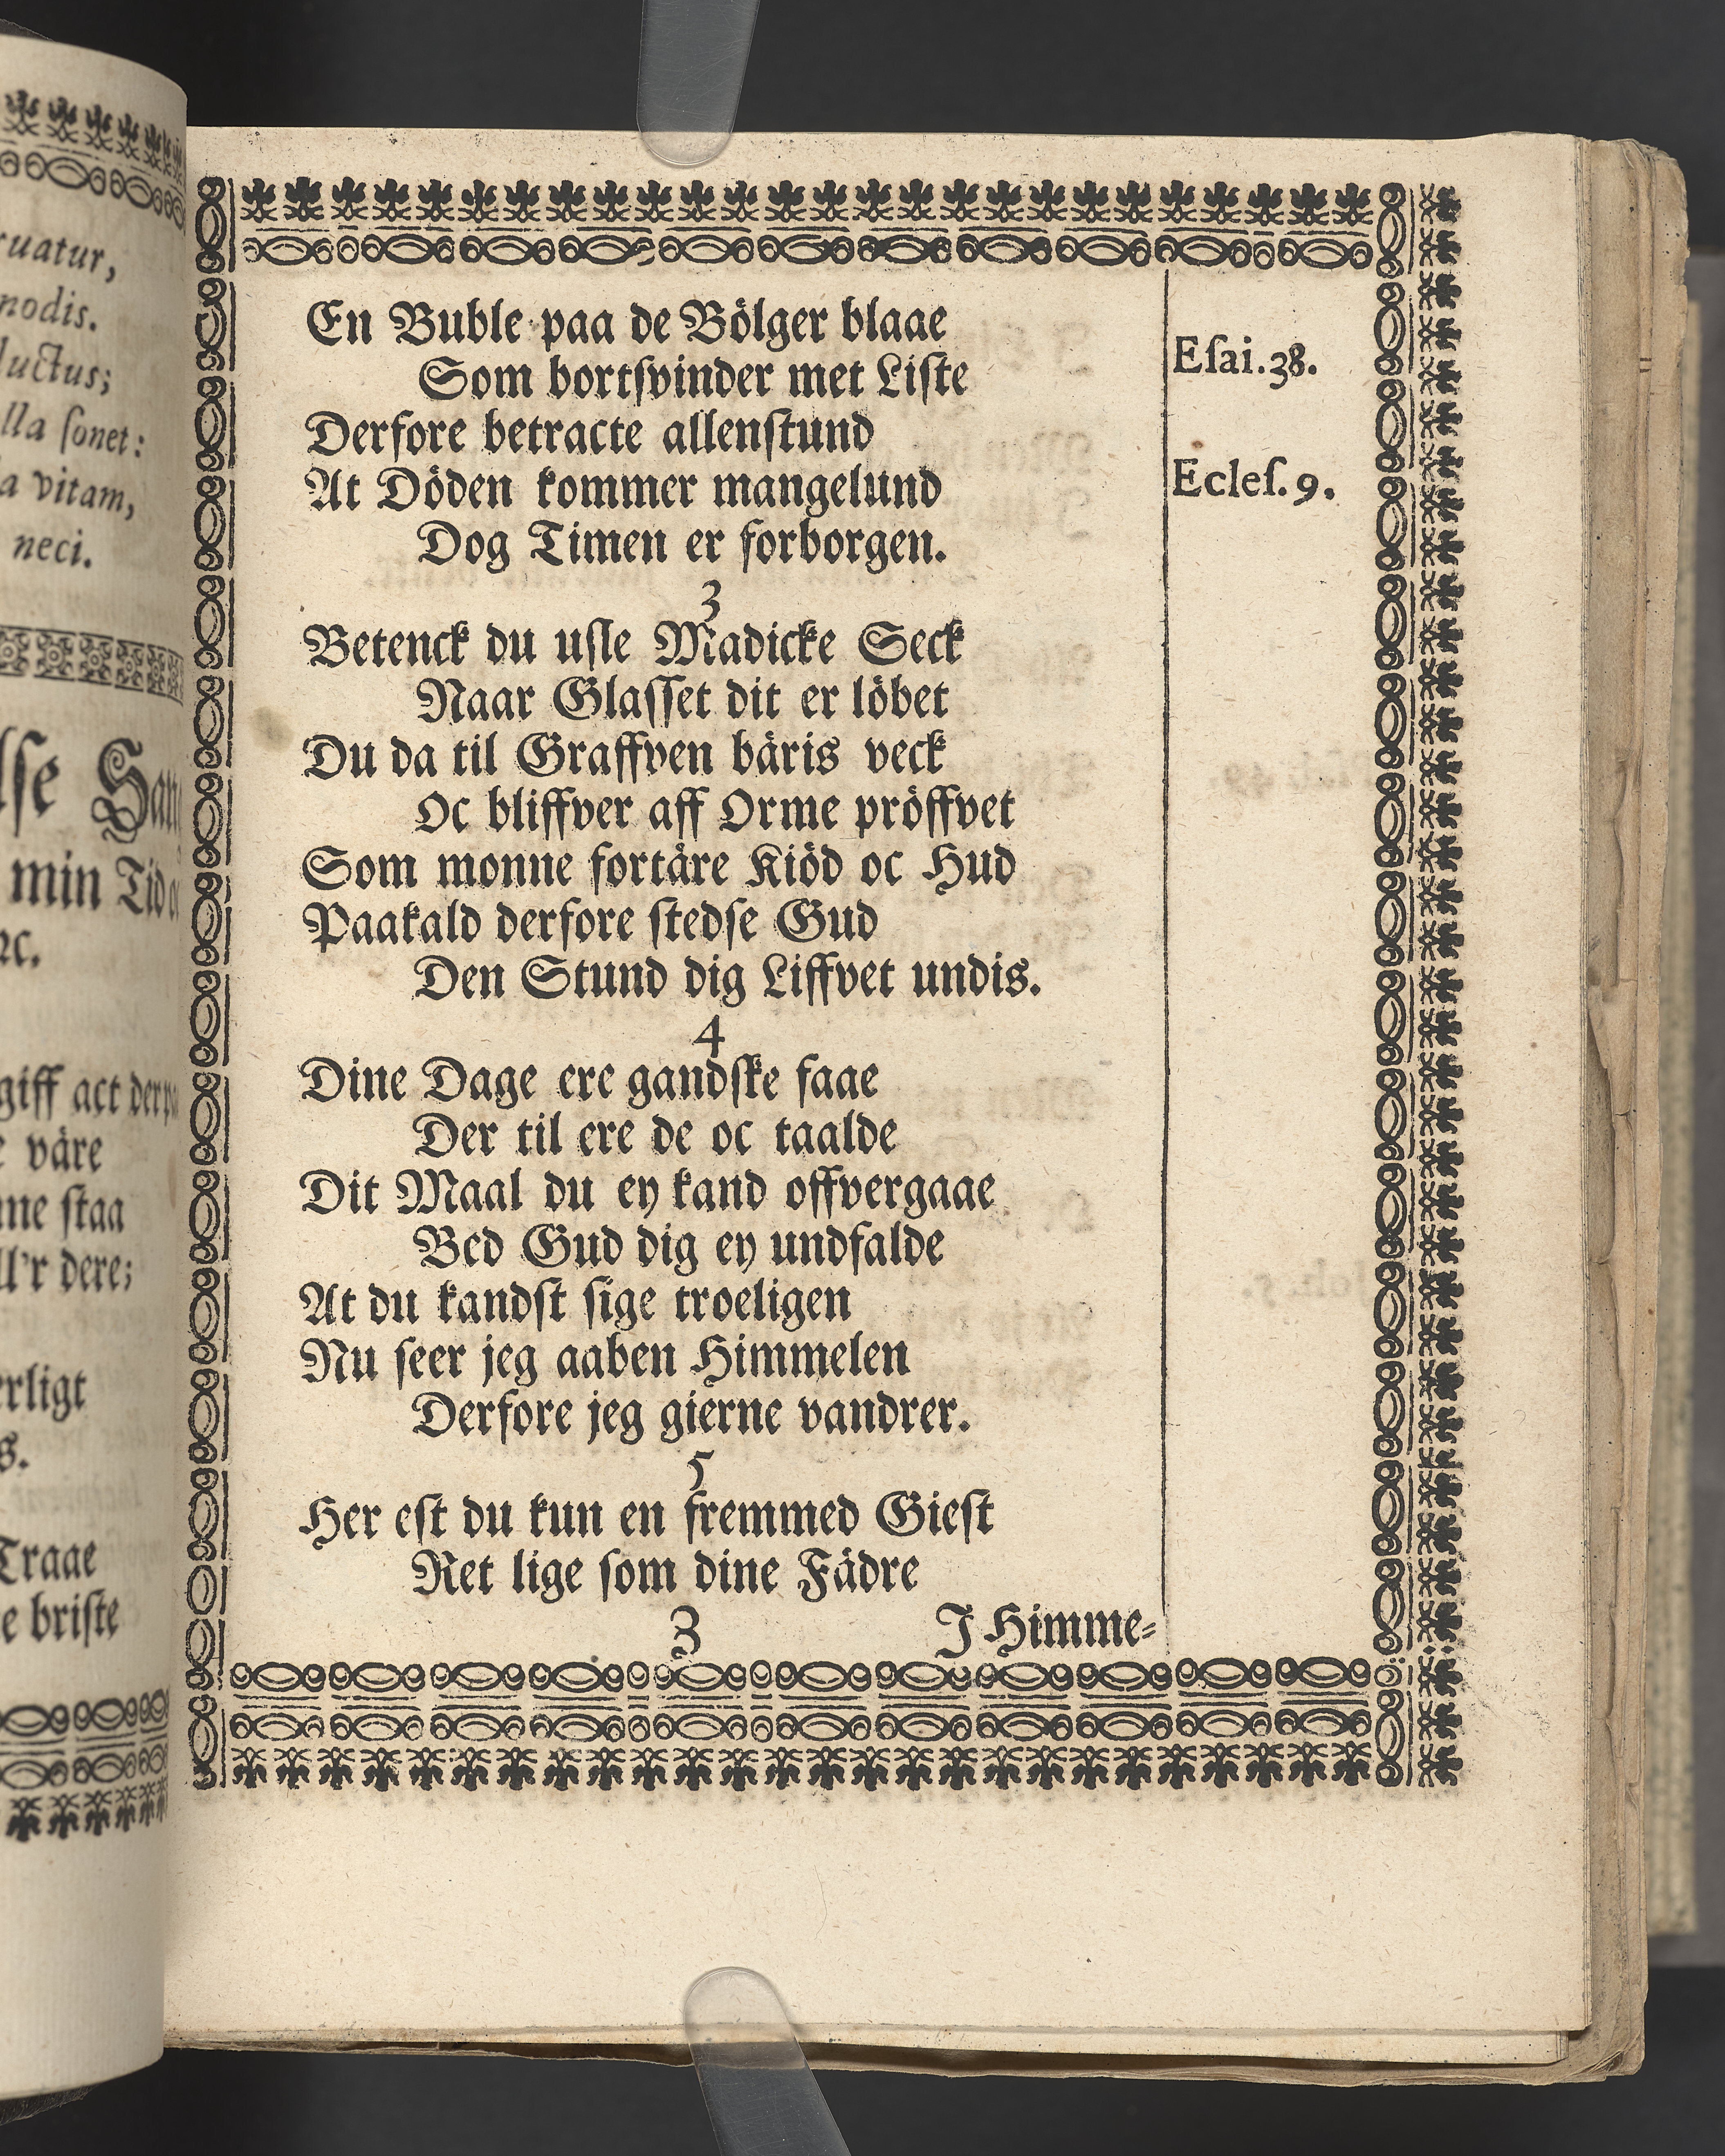 ruatur,
nodis.
luctus;
lla ſonet:
a vitam,
neci.
min Tid
ꝛc.
giff act
väre
ſtaa
ll'r dere;
Traae
briſte
En Buble paa de Bölger blaae
Som bortſvinder met Liſte
Derfore betracte allenſtund
At Döden kommer mangelund
Dog Timen er forborgen.
Eſai. 38.
Ecleſ. 9.
3
Betenck du uſle Madicke Seck
Naar Glaſſet dit er löbet
Du da til Graffven bäris veck
Oc bliffver aff Orme pröffvet
Som monne fortäre Kiöd oc Hud
Paakald derfore ſtedſe Gud
Den Stund dig Liffvet undis.
4
Dine Dage ere gandſke faae
Der til ere de oc taalde
Dit Maal du ey kand offvergaae
Bed Gud dig ey undfalde
At du kandſt ſige troeligen
Nu ſeer jeg aaben Himmelen
Derfore jeg gierne vandrer.
5
Her eſt du kun en fremmed Gieſt
Ret lige ſom dine Fädre
3 J Himme⸗